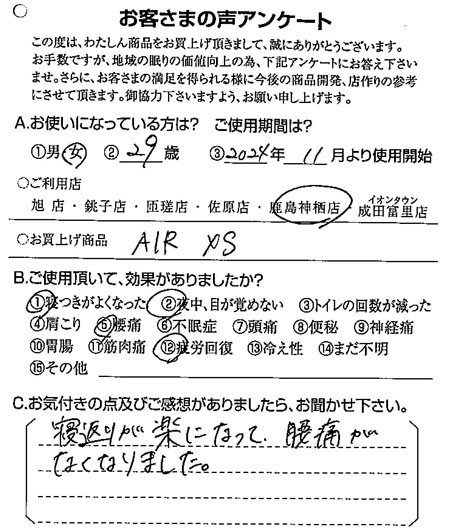 お客さまの声アンケート
この度は、わたしん商品をお買上げ頂きまして、誠にありがとうございます。
お手数ですが、地域の眠りの価値向上の為、下記アンケートにお答え下さい
ませ。さらに、お客さまの満足を得られる様に今後の商品開発、店作りの参考
にさせて頂きます。御協力下さいますよう、お願い申し上げます。
A.お使いになっている方は? ご使用期間は?
①男 女 ② 29 歳 ③2024年 11 月より使用開始
○ご利用店
旭 店・銚子店・匝瑳店・佐原店・鹿島神栖店・イオンタウン成田富里店
○お買上げ商品 AIR XS
B.ご使用頂いて、効果がありましたか?
①寝つきがよくなった ②夜中、目が覚めない ③トイレの回数が減った
④肩こり ⑤腰痛 ⑥不眠症 ⑦頭痛 ⑧便秘 ⑨神経痛
⑩胃腸 ⑪筋肉痛 ⑫疲労回復 ⑬冷え性 ⑭まだ不明
⑮その他
C.お気付きの点及びご感想がありましたら、お聞かせ下さい。
寝返りが楽になって、腰痛が
なくなりました。